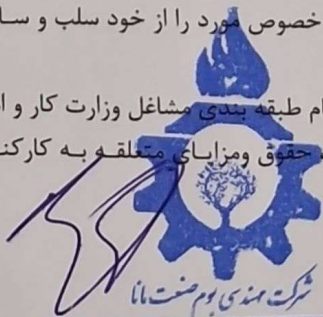 خصوص مورد را از خود سلب و سا
ام طبقه بندی مشاغل وزارت کار و ا
، حقوق ومزایای متعلقه به کارکنـ
شرکت مهندسی بوم صنعت مانا